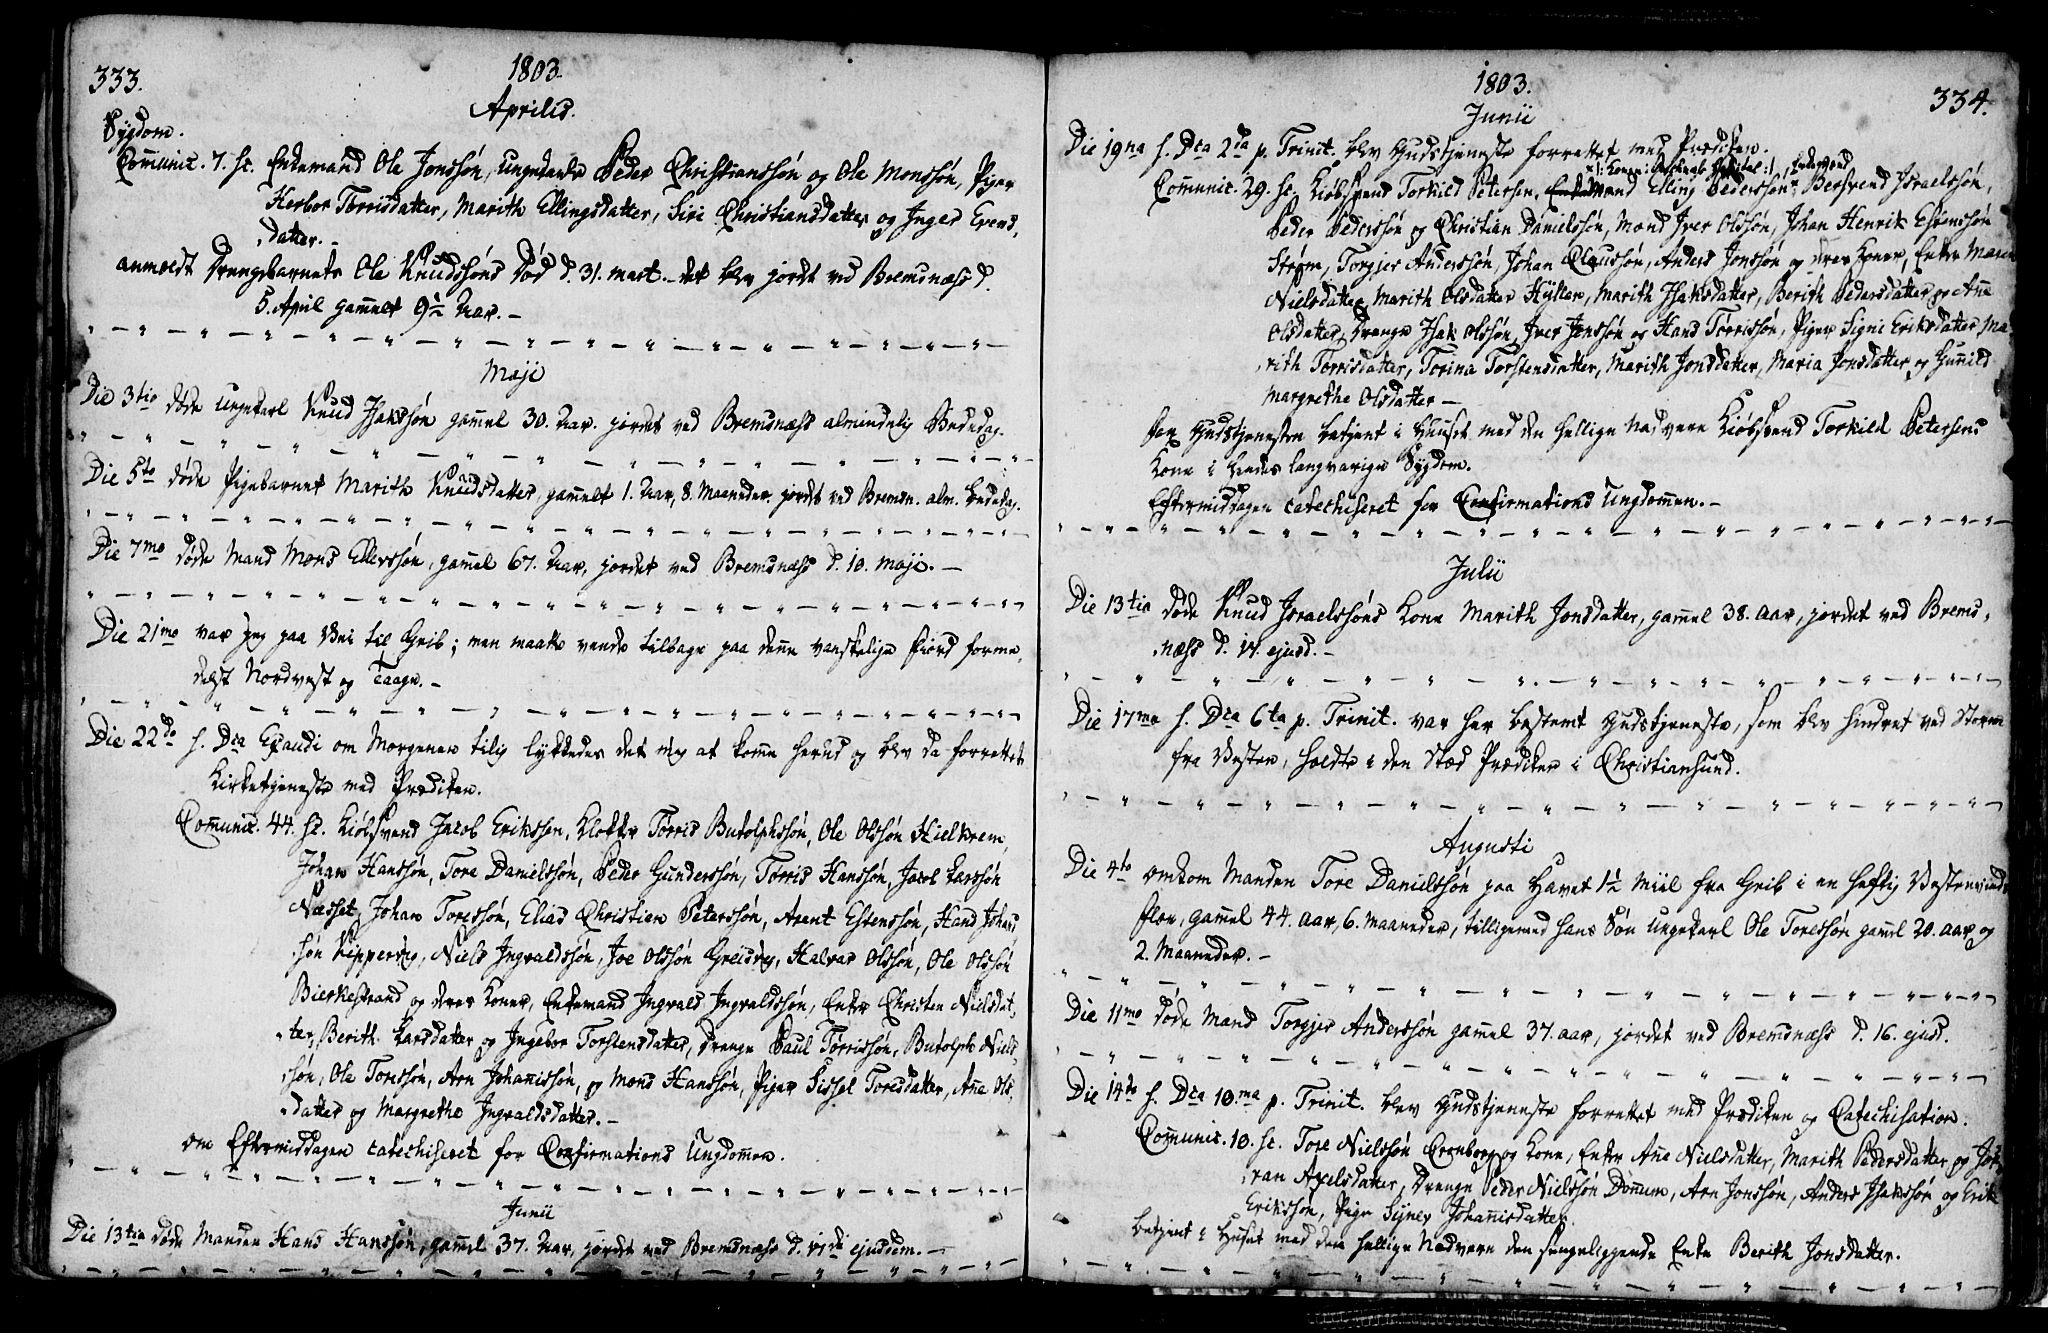 333.
1803.
Aprilis.
Sygdom.
Communic. 7. sc. Enkemand Ole Jonssøn, Ungekarle Peder Christianssøn og Ole Monssøn, Piger
Herbor Torrisdatter, Marith Ellingsdatter, Siri Christiansdatter og Inger Evens,
,datter. –
anmeldt Drengebarnets Ole Knudssøns Død d. 31. mart. – det blev jordet ved Bremsnæss d.
5. April gam̄elt 9½ Aar. –
Maji
Die 3tio døde Ungekarl Knud Isakssøn gam̄el 30. Aar. jordet ved Bremsnæss almindelig Bededag.
Die 5to døde Pigebarnet Marith Knudsdatter, gam̄elt 1. Aar, 8. Maaneder, jordet ved Bremsn. alm. Bededag.
Die 7mo døde Mand Mons Ellevssøn, gam̄el 67. Aar, jordet ved Bremsnæss d. 10. maji. –
Die 21mo var jeg paa Vei til Grib; men maate vende tilbage paa den̄e vanskelige Fiord forme,
delst Nordvest og Taage. –
Die 22do h. Dca Exaudi om Morgenen tilig lykkedes det mig at kom̄e herud og blev da forrettet
Kirketjeneste med Prædiken.
Com̄unic. 44. sc. Kiøbsvend Jacob Erikssen, Klokker Torris Butolphssøn, Ole Olssøn Hielkrem,
Johan Hanssøn, Tore Danielssøn, Peder Gunderssøn, Torris Hanssøn, Jacob Larssøn
Næsset, Johan Toressøn, Elias Christian Peterssøn, Arent Estenssøn, Hans Johans
,søn Kippervig, Niels Ingvaldssøn, Joe Olssøn Greisvig, Halvar Olssøn, Ole Olssøn
Bierkestrand og deres Koner, Enkemand Ingvald Ingvaldssøn, Enker Christen Nielsdat,
,ter, Berith Larsdatter og Ingebor Torstensdatter, Drenge Paul Torrissøn, Butolph Niels,
,søn, Ole Toressøn, Arn Johan̄issøn, og Mons Hanssøn, Piger Sissel Toresdatter, An̄e Ols,
,datter og Margrethe Ingvaldsdatter. –
om Eftermiddagen catechiseret for Confirmations Ungdom̄en.
Junii
Die 13tio døde Manden Hans Hanssøn, gam̄el 37. Aar, jordet ved Bremsnæss d. 17de ejusdem. –
1803.
334.
Junii
Die 19na h. Dca 2da p. Trinit. blev Gudstjeneste forrettet med Prædiken.
Com̄unic. 29. sc. Kiøbsvend Torkild Petersen, Mand Elling Pederssøn, Bersvend Israelssøn,
Peder Pederssøn og Christian Danielssøn, Mænd Iver Olssøn, Johan Henrik Estenssøn
Strøm, Torgjer Anderssøn, Johan Claussøn, Anders Jonssøn og deres Koner, Enker Maren
Nielsdatter, Marith Olsdatter Hyller, Marith Isaksdatter, Berith Pedersdatter og An̄e
Olsdatter, Drenge Isak Olssøn, Iver Jenssøn og Hans Torrissøn, Piger Signi Eriksdatter, Ma,
,rith Torrisdatter, Torina Torstensdatter, Marith Jonsdatter, Maria Jonsdatter og Gunild
Margrethe Olsdatter –
før Gudstjenesten betjent i Huuset med den hellige Nadvere Kiøbsvend Torkild Petersens
Kone i hendes langvarige Sygdom.
Eftermiddagen catechiseret for Confirmations Ungdom̄en. –
Julii
Die 13tio døde Knud Israelssøns Kone Marith Jonsdatter, gam̄el 38. Aar, jordet ved Brems,
,næss d. 17. ejusd. –
Die 17ma h. Dca 6ta p. Trinit. var her bestemt Gudstjeneste, som blev hindret ved Storm
fra Vester, holdte i den Stæd Prædiken i Christiansund.
Augusti
Die 4to omkom Manden Tore Danielssøn paa Havet 1½ Miil fra Grib i en heftig Vestenvinds
fløe, gam̄el 44. Aar, 6. Maaneder, tilligemed hans Søn Ungekarl Ole Toressøn gam̄el 20. Aar og
2. Maaneder. –
Die 11mo døde Mand Torgjer Anderssøn gam̄el 37. aar, jordet ved Bremsnæss d. 16. ejusd.
Die 14de h. Dca 10ma p. Trinit. blev Gudstjeneste forrettet med Prædiken og Catechisation.
Com̄unic. 10. sc. Tore Nielssøn Cronborg og Kone, Enker An̄e Nielsdatter, Marith Pedersdatter og Jør
,ran Axelsdatter, Drenge Peder Nielssøn Døn̄um, Arn Jonssøn, Anders Isakssøn og Erik
Erikssøn, Pige Synev Johan̄isdatter.
betjent i Huset med den hellige Nadvere den sengeliggende Enke Berith Jonsdatter.